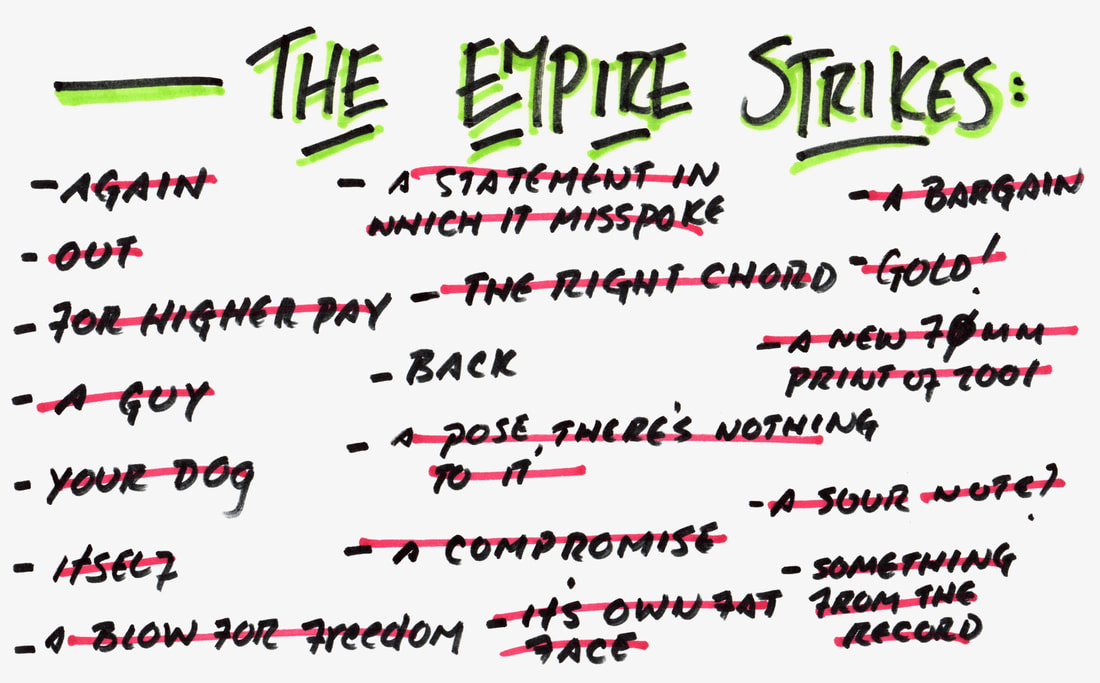 — THE EMPIRE STRIKES:
- AGAIN
- OUT
- FOR HIGHER PAY
- A GUY
- YOUR DOG
- ITSELF
- A BLOW FOR FREEDOM
- A STATEMENT IN
WHICH IT MISSPOKE
- THE RIGHT CHORD
- BACK
- A POSE, THERE'S NOTHING
TO IT
- A COMPROMISE
- IT'S OWN FAT
FACE
- A BARGAIN
- GOLD!
- A NEW 70MM
PRINT OF 2001
- A SOUR NOTE?
- SOMETHING
FROM THE
RECORD